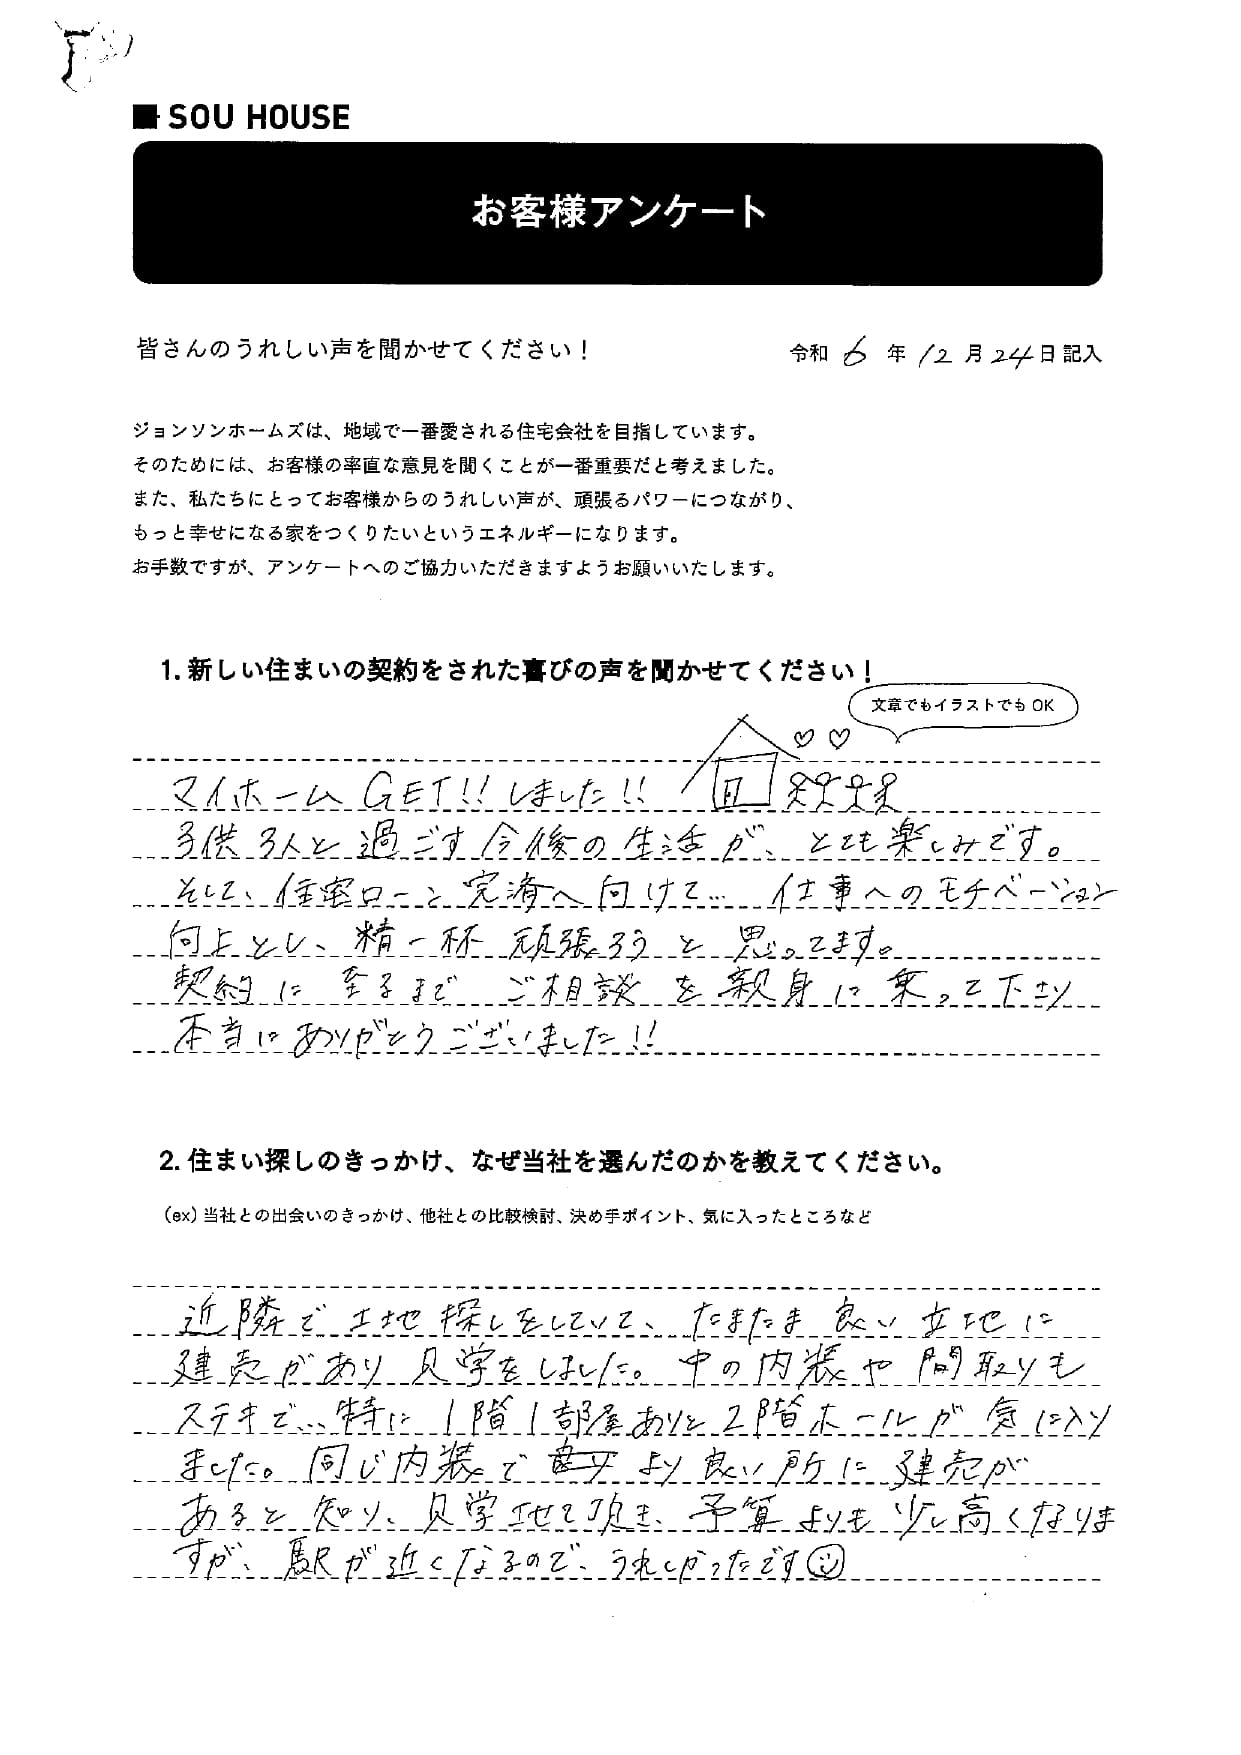 SOU HOUSE
お客様アンケート
皆さんのうれしい声を聞かせてください！
令和 6 年 12 月 24 日 記入
ジョンソンホームズは、地域で一番愛される住宅会社を目指しています。
そのためには、お客様の率直な意見を聞くことが一番重要だと考えました。
また、私たちにとってお客様からのうれしい声が、頑張るパワーにつながり、
もっと幸せになる家をつくりたいというエネルギーになります。
お手数ですが、アンケートへのご協力いただきますようお願いいたします。
1. 新しい住まいの契約をされた喜びの声を聞かせてください！
文章でもイラストでも OK
マイホーム GET!! しました!!
子供 3人と過ごす今後の生活が、とても楽しみです。
そして、住宅ローン完済へ向けて… 仕事へのモチベーション
向上とし、精一杯 頑張ろうと思ってます。
契約に至るまで ご相談を親身に乗って下さり
本当にありがとうございました!!
2. 住まい探しのきっかけ、なぜ当社を選んだのかを教えてください。
（ex）当社との出会いのきっかけ、他社との比較検討、決め手ポイント、気に入ったところなど
近隣で土地探しをしていて、たまたま良い立地に
建売があり見学をしました。中の内装や間取りも
ステキで…特に1階1部屋ありと2階ホールが気に入り
ました。同じ内装で より良い所に建売が
あると知り、見学させて頂き、予算よりも少し高くなりま
すが、駅が近くなるので、うれしかったです